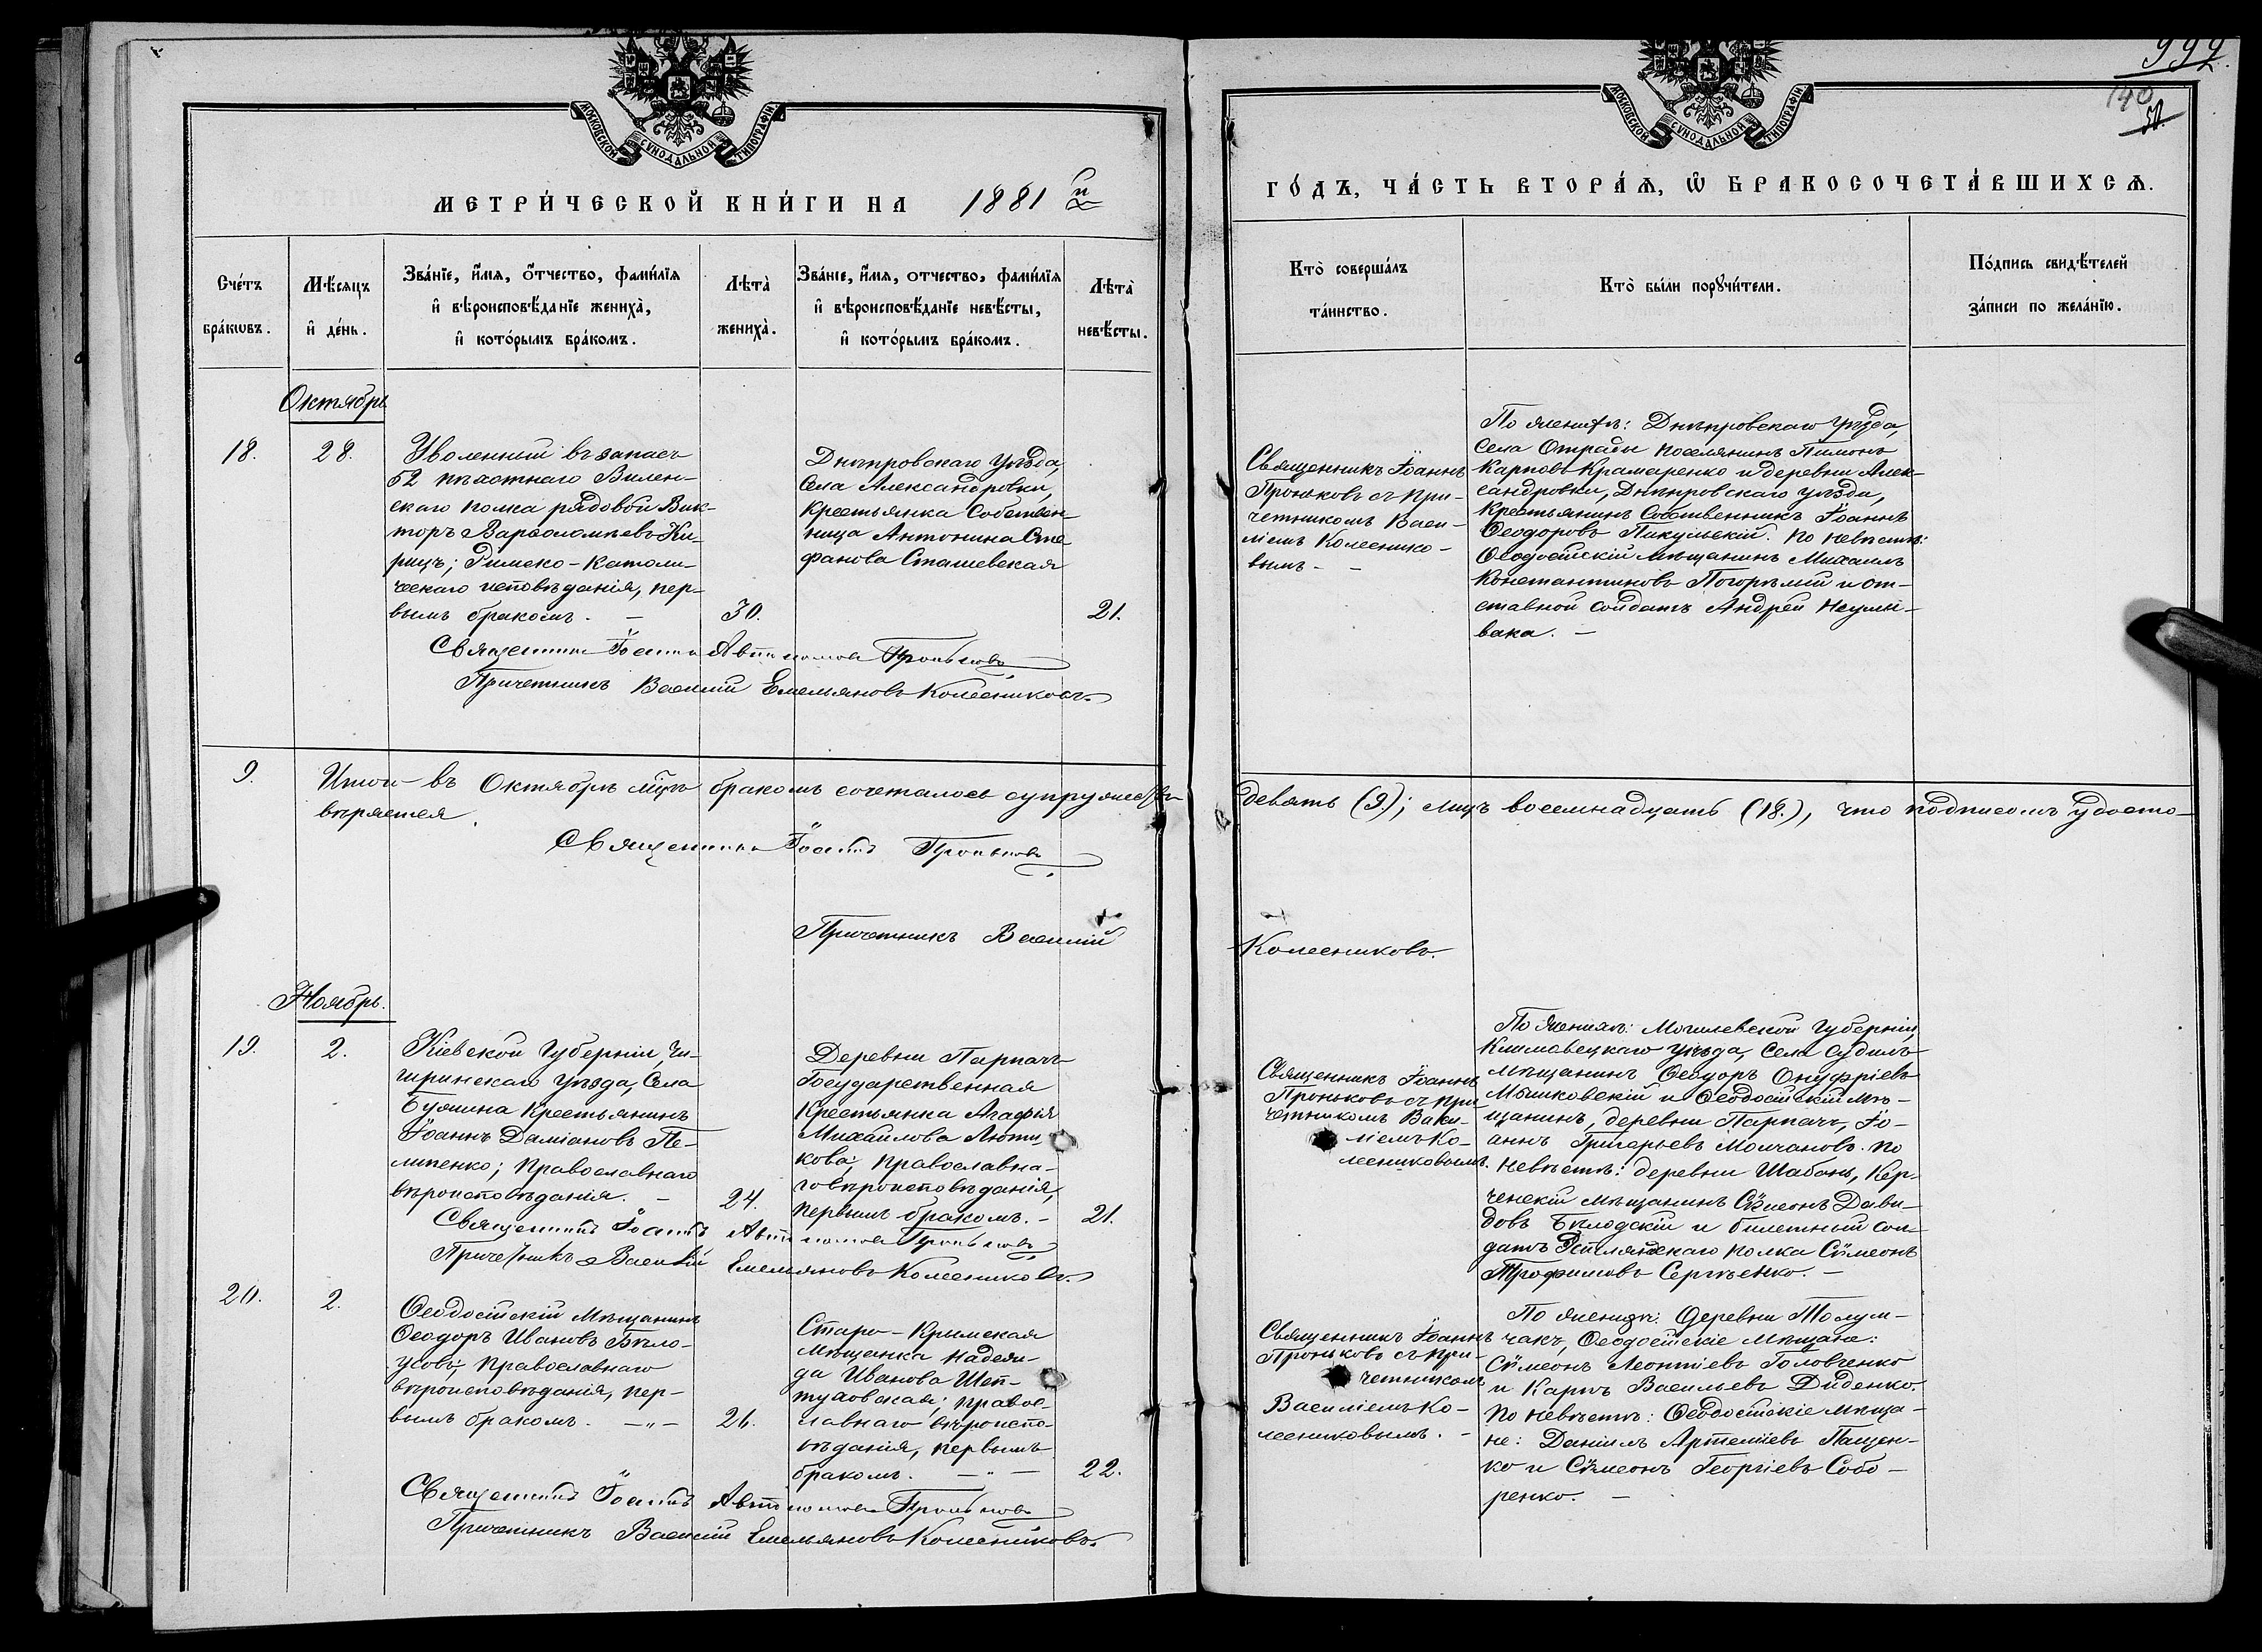 999.
140
МОСКОВСКОЙ СѴНОДАЛЬНОЙ ТИПОГРАФІИ
МОСКОВСКОЙ СѴНОДАЛЬНОЙ ТИПОГРАФІИ
МЕТРИ́ЧЕСКОЙ КНИ́ГИ НА 1881 й
ГО́ДЪ, ЧА́СТЬ ВТОРА́Ѧ, Ѿ БРАКОСОЧЕТА́ВШИХСѦ.
Сче́тъ
бра́кѡвъ.
Мѣ́сяцъ
и҆ де́нь.
Зва́нїе, и҆́мѧ, о҆́тчество, фами́лїѧ
и҆ вѣроисповѣ́данїе жениха̀,
и҆ кото́рымъ бра́комъ.
Лѣта̀
жениха̀.
Зва́нїе, и҆́мѧ, отчество, фами́лїѧ
и҆ вѣроисповѣ́данїе невѣ́сты,
и҆ кото́рымъ бра́комъ.
Лѣта̀
невѣ́сты.
Кто̀ соверша́лъ
та́инство.
Кто̀ бы́ли порꙋчи́тели.
По́дпись свидѣ́телей
за́писи по жела́нїю.
Октябрь
18.
28.
Уволенный въ запасъ
52 пѣхотнаго Вилен-
скаго полка рядовой Вик-
торъ Варѳоломѣевъ Ки-
рицъ; Римско-Католи-
ческаго исповѣданія, пер-
вымъ бракомъ. —
30.
Днѣпровскаго уѣзда,
Села Александровки,
Крестьянка Собствен-
ница Антонина Сте
фанова Сташевская
21.
Священникъ Іоаннъ
Проньковъ съ при-
четникомъ Васи-
ліемъ Колеснико-
вымъ. —
По женихѣ: Днѣпровскаго уѣзда,
Села Отрады поселянинъ Пимонъ
Карповъ Крамаренко и деревни Алек-
сандровки, Днѣпровскаго уѣзда,
Крестьянинъ Собственникъ Іоаннъ
Ѳеодоровъ Пикульскій. По невѣстѣ:
Ѳеодосійскій мѣщанинъ Михаилъ
Константиновъ Погорѣлый и от-
ставной солдатъ Андрей Неумы-
вака. —
Священникъ Іоаннъ Автономовъ Проньковъ
Причетникъ Василій Емельяновъ Колесниковъ.
9.
Итого въ Октябрѣ мцѣ бракомъ сочеталось супружествъ
девять (9.); лицъ восемнадцать (18.), что подписомъ удосто-
вѣряется.
Священникъ Іоаннъ Проньковъ
Причетникъ Василій
Колесниковъ.
Ноябрь.
19.
2.
Кіевской Губерніи, Чи-
гиринскаго уѣзда, Села
Бужина Крестьянинъ
Іоаннъ Даміановъ Пе-
липенко; Православнаго
вѣроисповѣданія. —
24.
Деревни Парпачъ
Государственная
Крестьянка Агафія
Михайлова Люти
кова; православна-
го вѣроисповѣданія,
первымъ бракомъ. —
21.
Священникъ Іоаннъ
Проньковъ съ при-
четникомъ Васи-
ліемъ Ко-
лесниковымъ.
По женихѣ: Могилевской Губерніи,
Климовецкаго уѣзда, Села Судилъ
Мѣщанинъ Ѳеодоръ Онуфріевъ
Мышковскій и Ѳеодосійскій Мѣ-
щанинъ, деревни Парпачъ, Іо-
аннъ Григорьевъ Молчановъ. По
невѣстѣ: деревни Шабань, Кер-
ченскій мѣщанинъ Сѵмеонъ Дави-
довъ Бѣлодскій и билетный сол-
датъ полка Сѵмеонъ
Трофимовъ Сергѣенко. —
Священникъ Іоаннъ Автономовъ Проньковъ
Причетникъ Василій Емельяновъ Колесниковъ.
20.
2.
Ѳеодосійскій Мѣщанинъ
Ѳеодоръ Ивановъ Бѣло-
усовъ; православнаго
вѣроисповѣданія, пер-
вымъ бракомъ. —"—
26.
Старо-Крымская
Мѣщанка Надеж-
да Иванова Шеп-
туховская; правос-
лавнаго вѣроиспо-
вѣданія, первымъ
бракомъ. —"—
22.
Священникъ Іоаннъ
Проньковъ съ при-
четникомъ
Василіемъ Ко-
лесниковымъ. —
По женихѣ: Деревни Толум-
чакъ, Ѳеодосійскіе Мѣщане:
Сѵмеонъ Леонтіевъ Головченко
и Карпъ Васильевъ Диденко.
По невѣстѣ: Ѳеодосійскіе мѣща-
не: Даніилъ Артеміевъ Пащен-
ко и Сѵмеонъ Георгіевъ Собо-
ренко. —
Священникъ Іоаннъ Автономовъ Проньковъ
Причетникъ Василій Емельяновъ Колесниковъ.